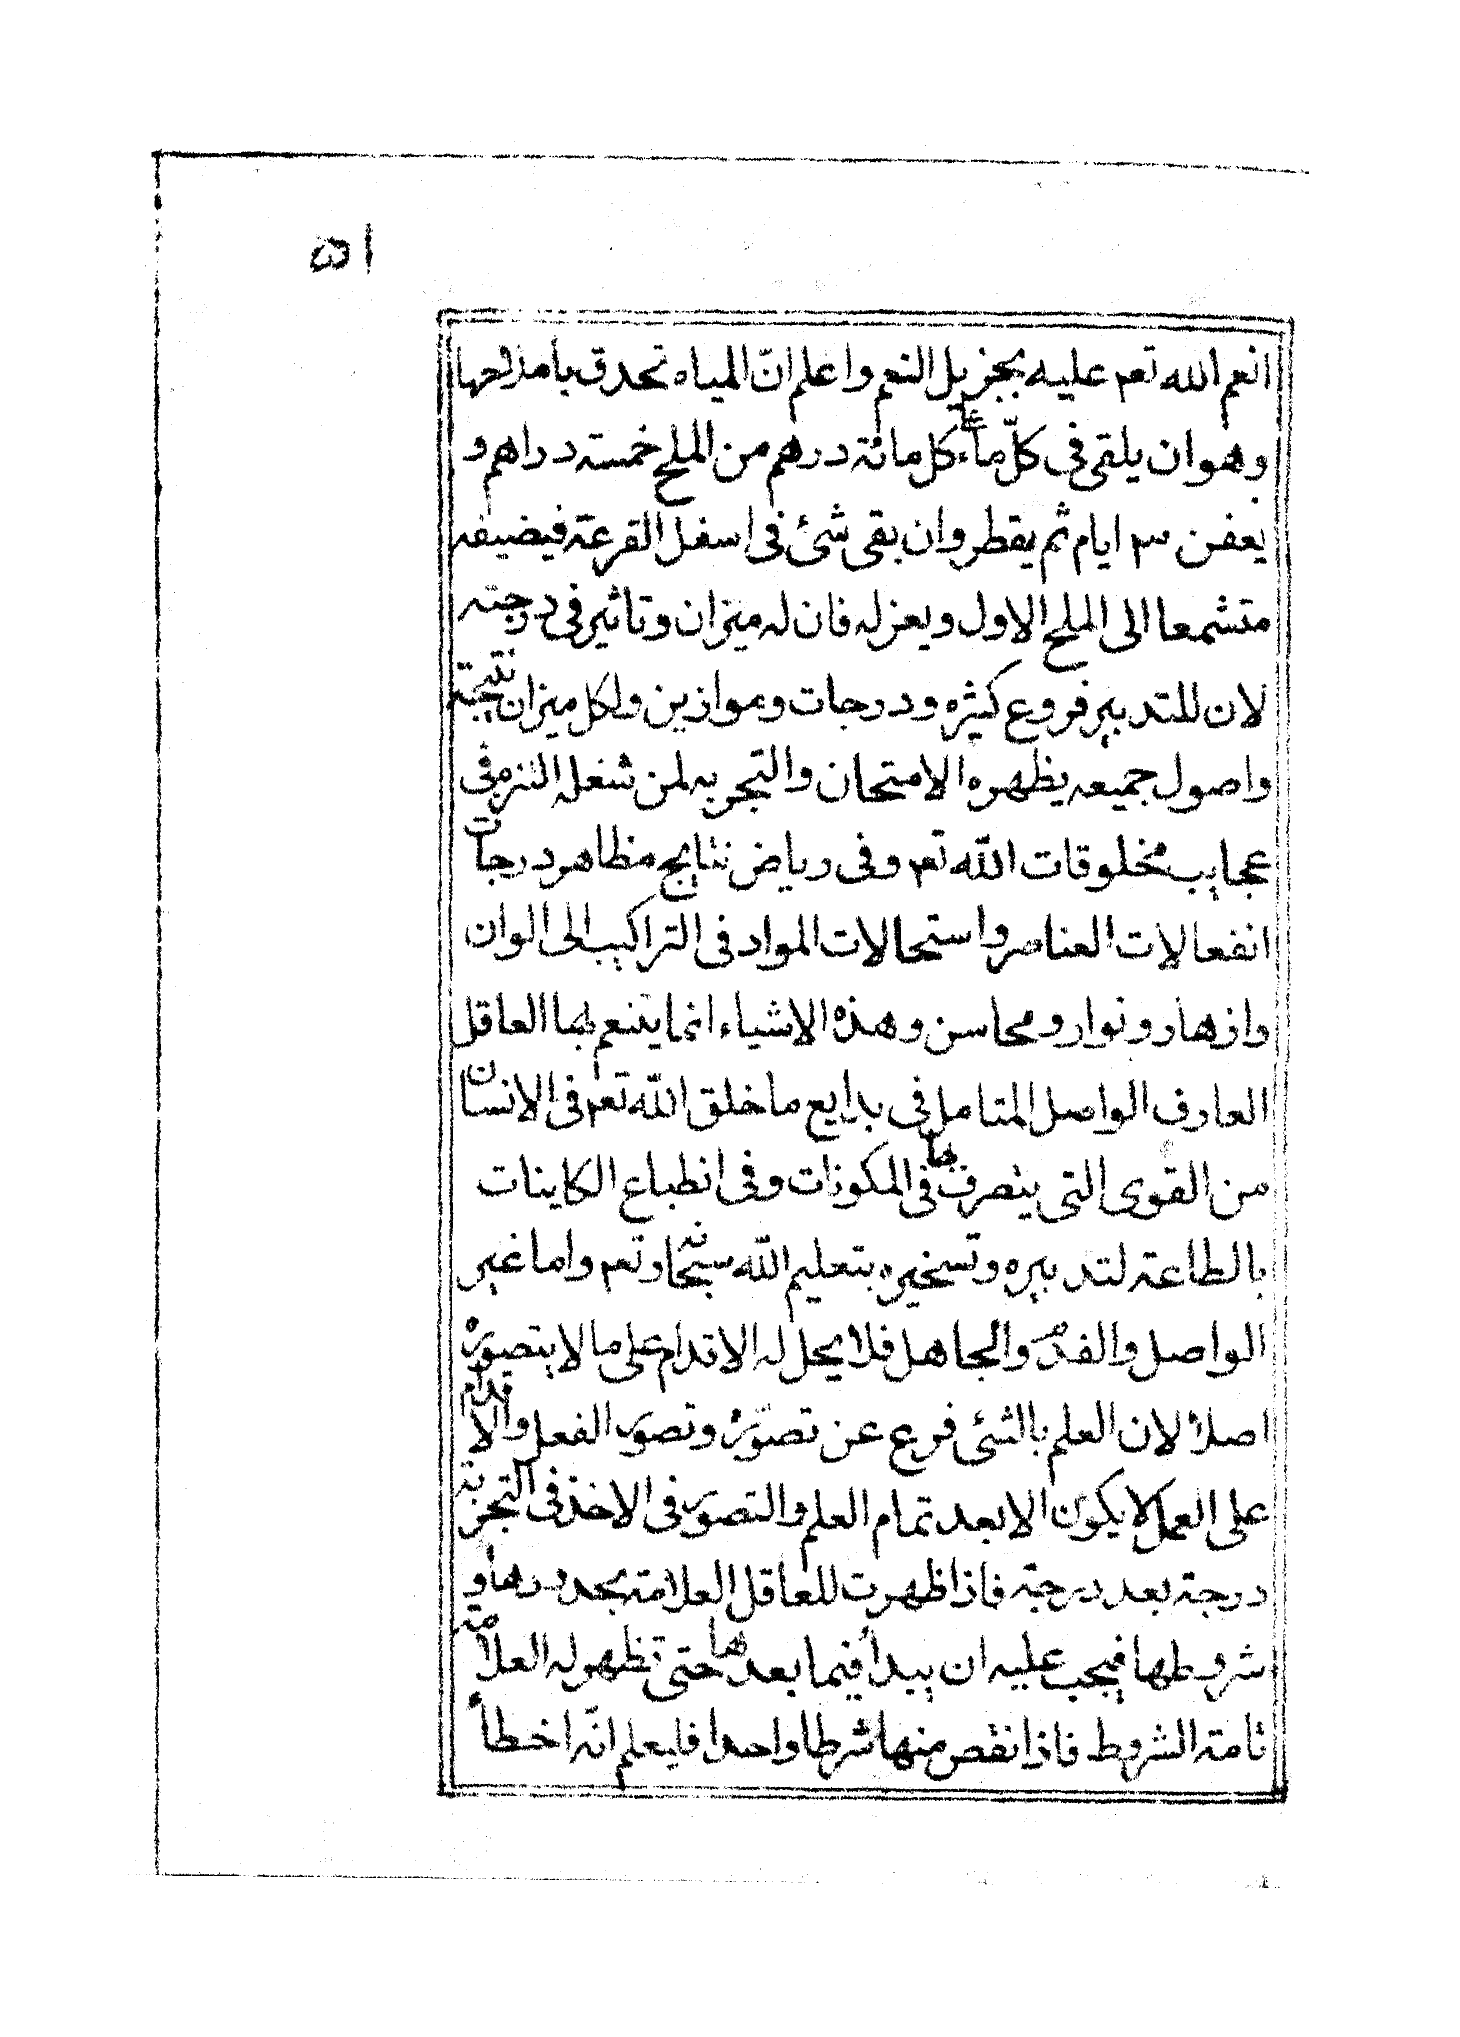 ١٥
انعم الله تعم عليه بجزيل النعم واعلم انّ المياه تحدق باملاحها
وهو ان يلقى فى كلّ ماء على كل مائة درهم من الملح خمسة دراهم و
يعفن ٣ ايام ثم يقطر وان بقى شئ فى اسفل القرعة فيضيفه
متشمعا الى الملح الاول ويعزله فان له ميزان وتاثير فى درجته
لان للتدبير فروع كثيره ودرجات وموازين ولكل ميزان نتيجة
واصول جميعه يظهره الامتحان والتجربه لمن شغله التنزه فى
عجايب مخلوقات الله تعم وفى رياض نتايج مظاهر درجات
انفعالات العناصر واستحالات المواد فى التراكيب الى الوان
وازهار ونوار ومحاسن وهذه الاشياء انما يتنعم بها العاقل
العارف الواصل المتامل فى بدايع ما خلق الله تعم فى الانسان
من القوى التى يتصرف بها فى المكونات وفى انطباع الكاينات
بالطاعة لتدبيره وتسخيره بتعليم الله سبحانه وتعم واما غير
الواصل والفدم والجاهل فلا يحل له الاقدام على ما لا يتصوره
اصلا لان العلم بالشئ فرع عن تصوّره وتصور الفعل والاقدام
على العمل لا يكون الا بعد تمام العلم والتصور فى الاخذ فى التجربة
درجة بعد درجة فاذا ظهرت للعاقل العلامة بحدودها و
شروطها فيجب عليه ان يبدأ فيما بعدها حتى تظهر له العلامة
تامة الشروط فاذا نقص منها شرطا واحدا فليعلم انّه اخطأ